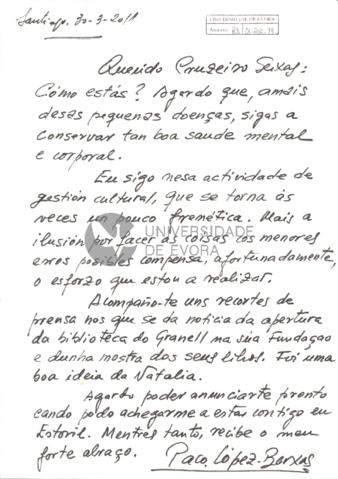 Santiago, 30-3-2011
UNIVERSIDADE DE ÉVORA
Querido Cruzeiro Seixas:
Cómo estás? Agardo que, amais
desas pequenas doenças, sigas a
conservar tan boa saude mental
e corporal.
Eu sigo nesa actividade de
gestión cultural, que se torna às
veces un pouco frenética. Mais a
ilusión por facer as coisas cos menores
erros posibles compensa, afortunadamente,
o esforzo que estou a realizar.
UNIVERSIDADE
DE ÉVORA
Acompaño-te uns recortes de
prensa nos que se da noticia da apertura
da biblioteca do Granell na súa Fundaçao
e dunha mostra dos seus libros. Foi uma
boa ideia da Natalia.
Agardo poder anunciarte pronto
cando podo achegarme a estar contigo en
Estoril. Mentres tanto, recibe o meu
forte abraço.
Paco López-Barxas